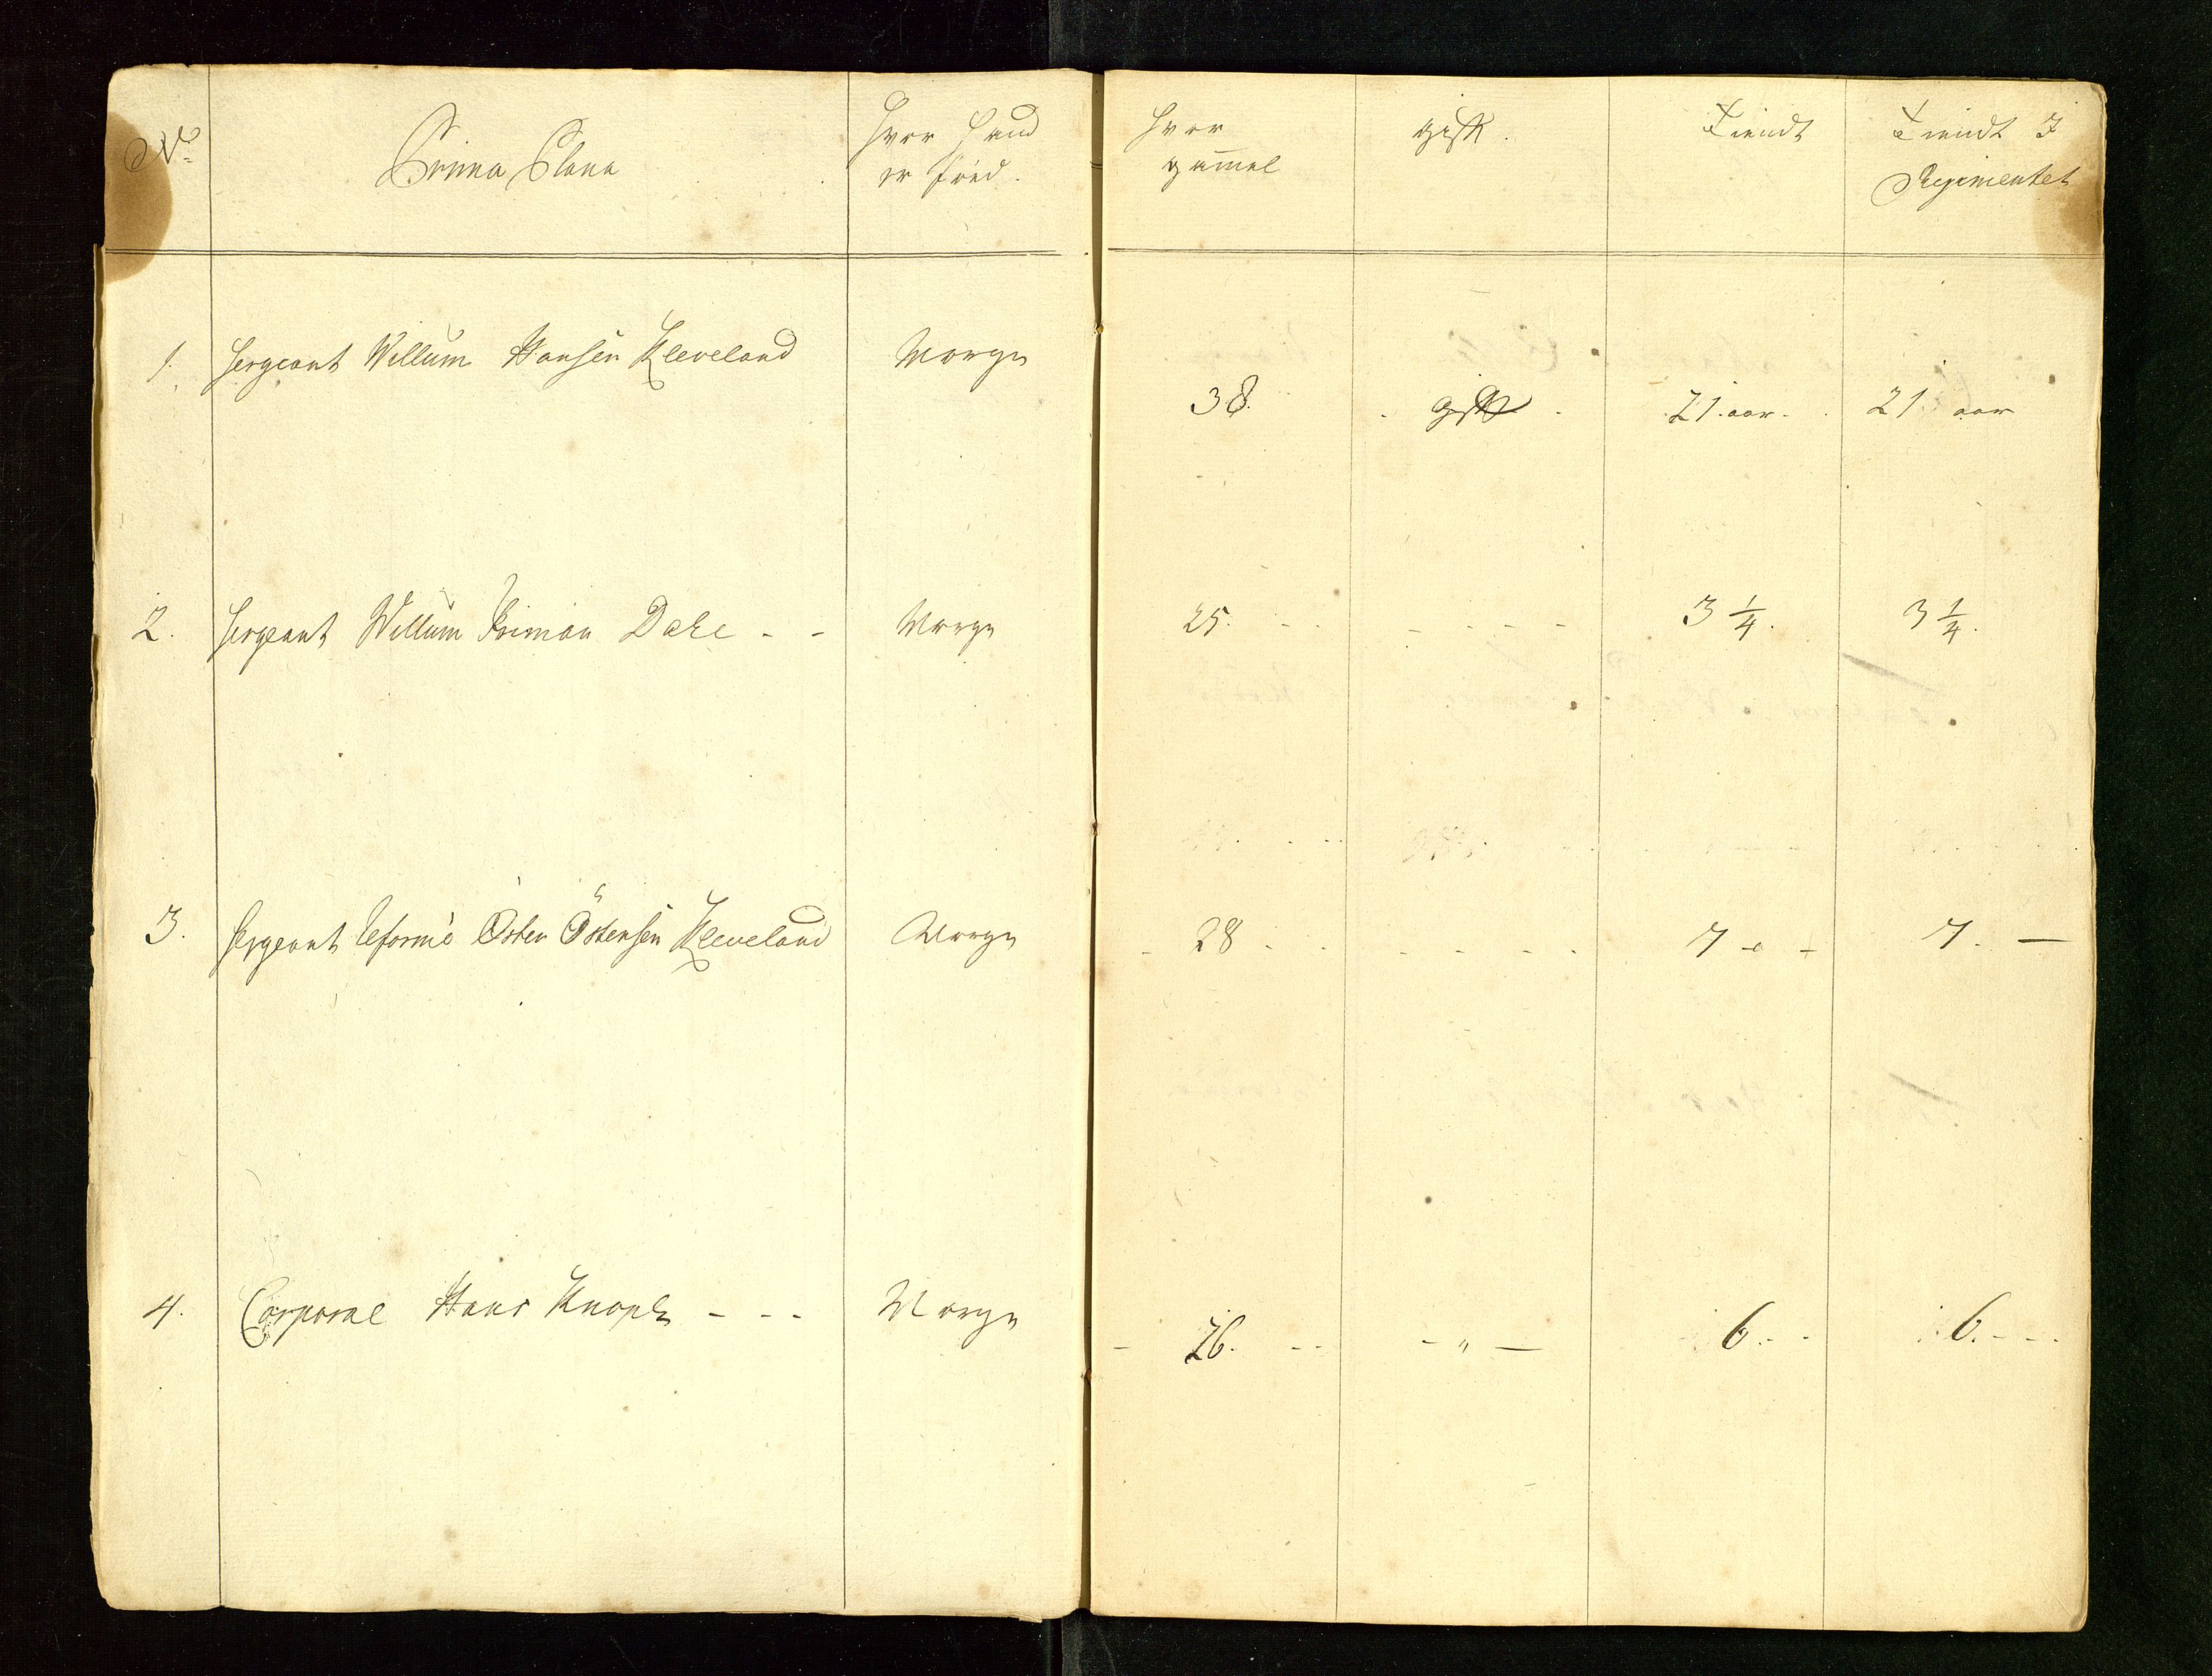 No Prima Plana hvor hand er föed. hvor gammel gift. Tiendt Tiendt I Regimentet
1. Sergeant Willum Hansen Kleveland Norge 38. gift 21. aar. 21 aar
2. Sergeant Willum Friman Dahl - - Norge 25. 3 1/4. 3 1/4.
3. Sergeant Reformé Östen Östensen Kleveland Norge 28 7 7. —
4. Corporal Hans Knoph - - - Norge 26. - " — 6. - 6. - -